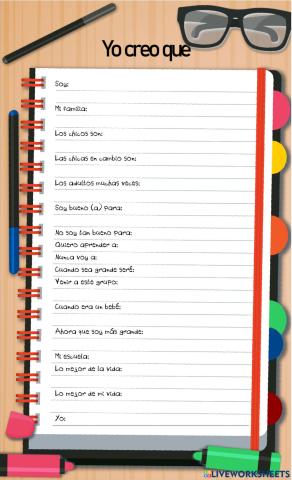 Yo creo que
Soy:
Mi familia:
Los chicos son:
Las chicas en cambio son:
Los adultos muchas veces:
Soy bueno (a) para:
No soy tan bueno para:
Quiero aprender a:
Nunca voy a:
Cuando sea grande seré:
Venir a este grupo:
Cuando era un bebé:
Ahora que soy más grande:
Mi escuela:
Lo mejor de la vida:
Lo mejor de mi vida:
Yo:
LIVEWORKSHEETS